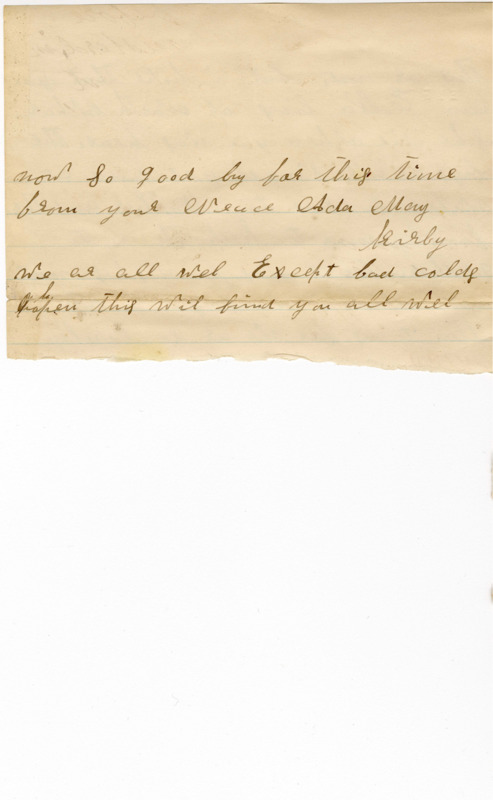 now So good by for this time
from your Neace Ada May
Kirby
we ar all wel Except bad colds
hopen this wil find you all wel